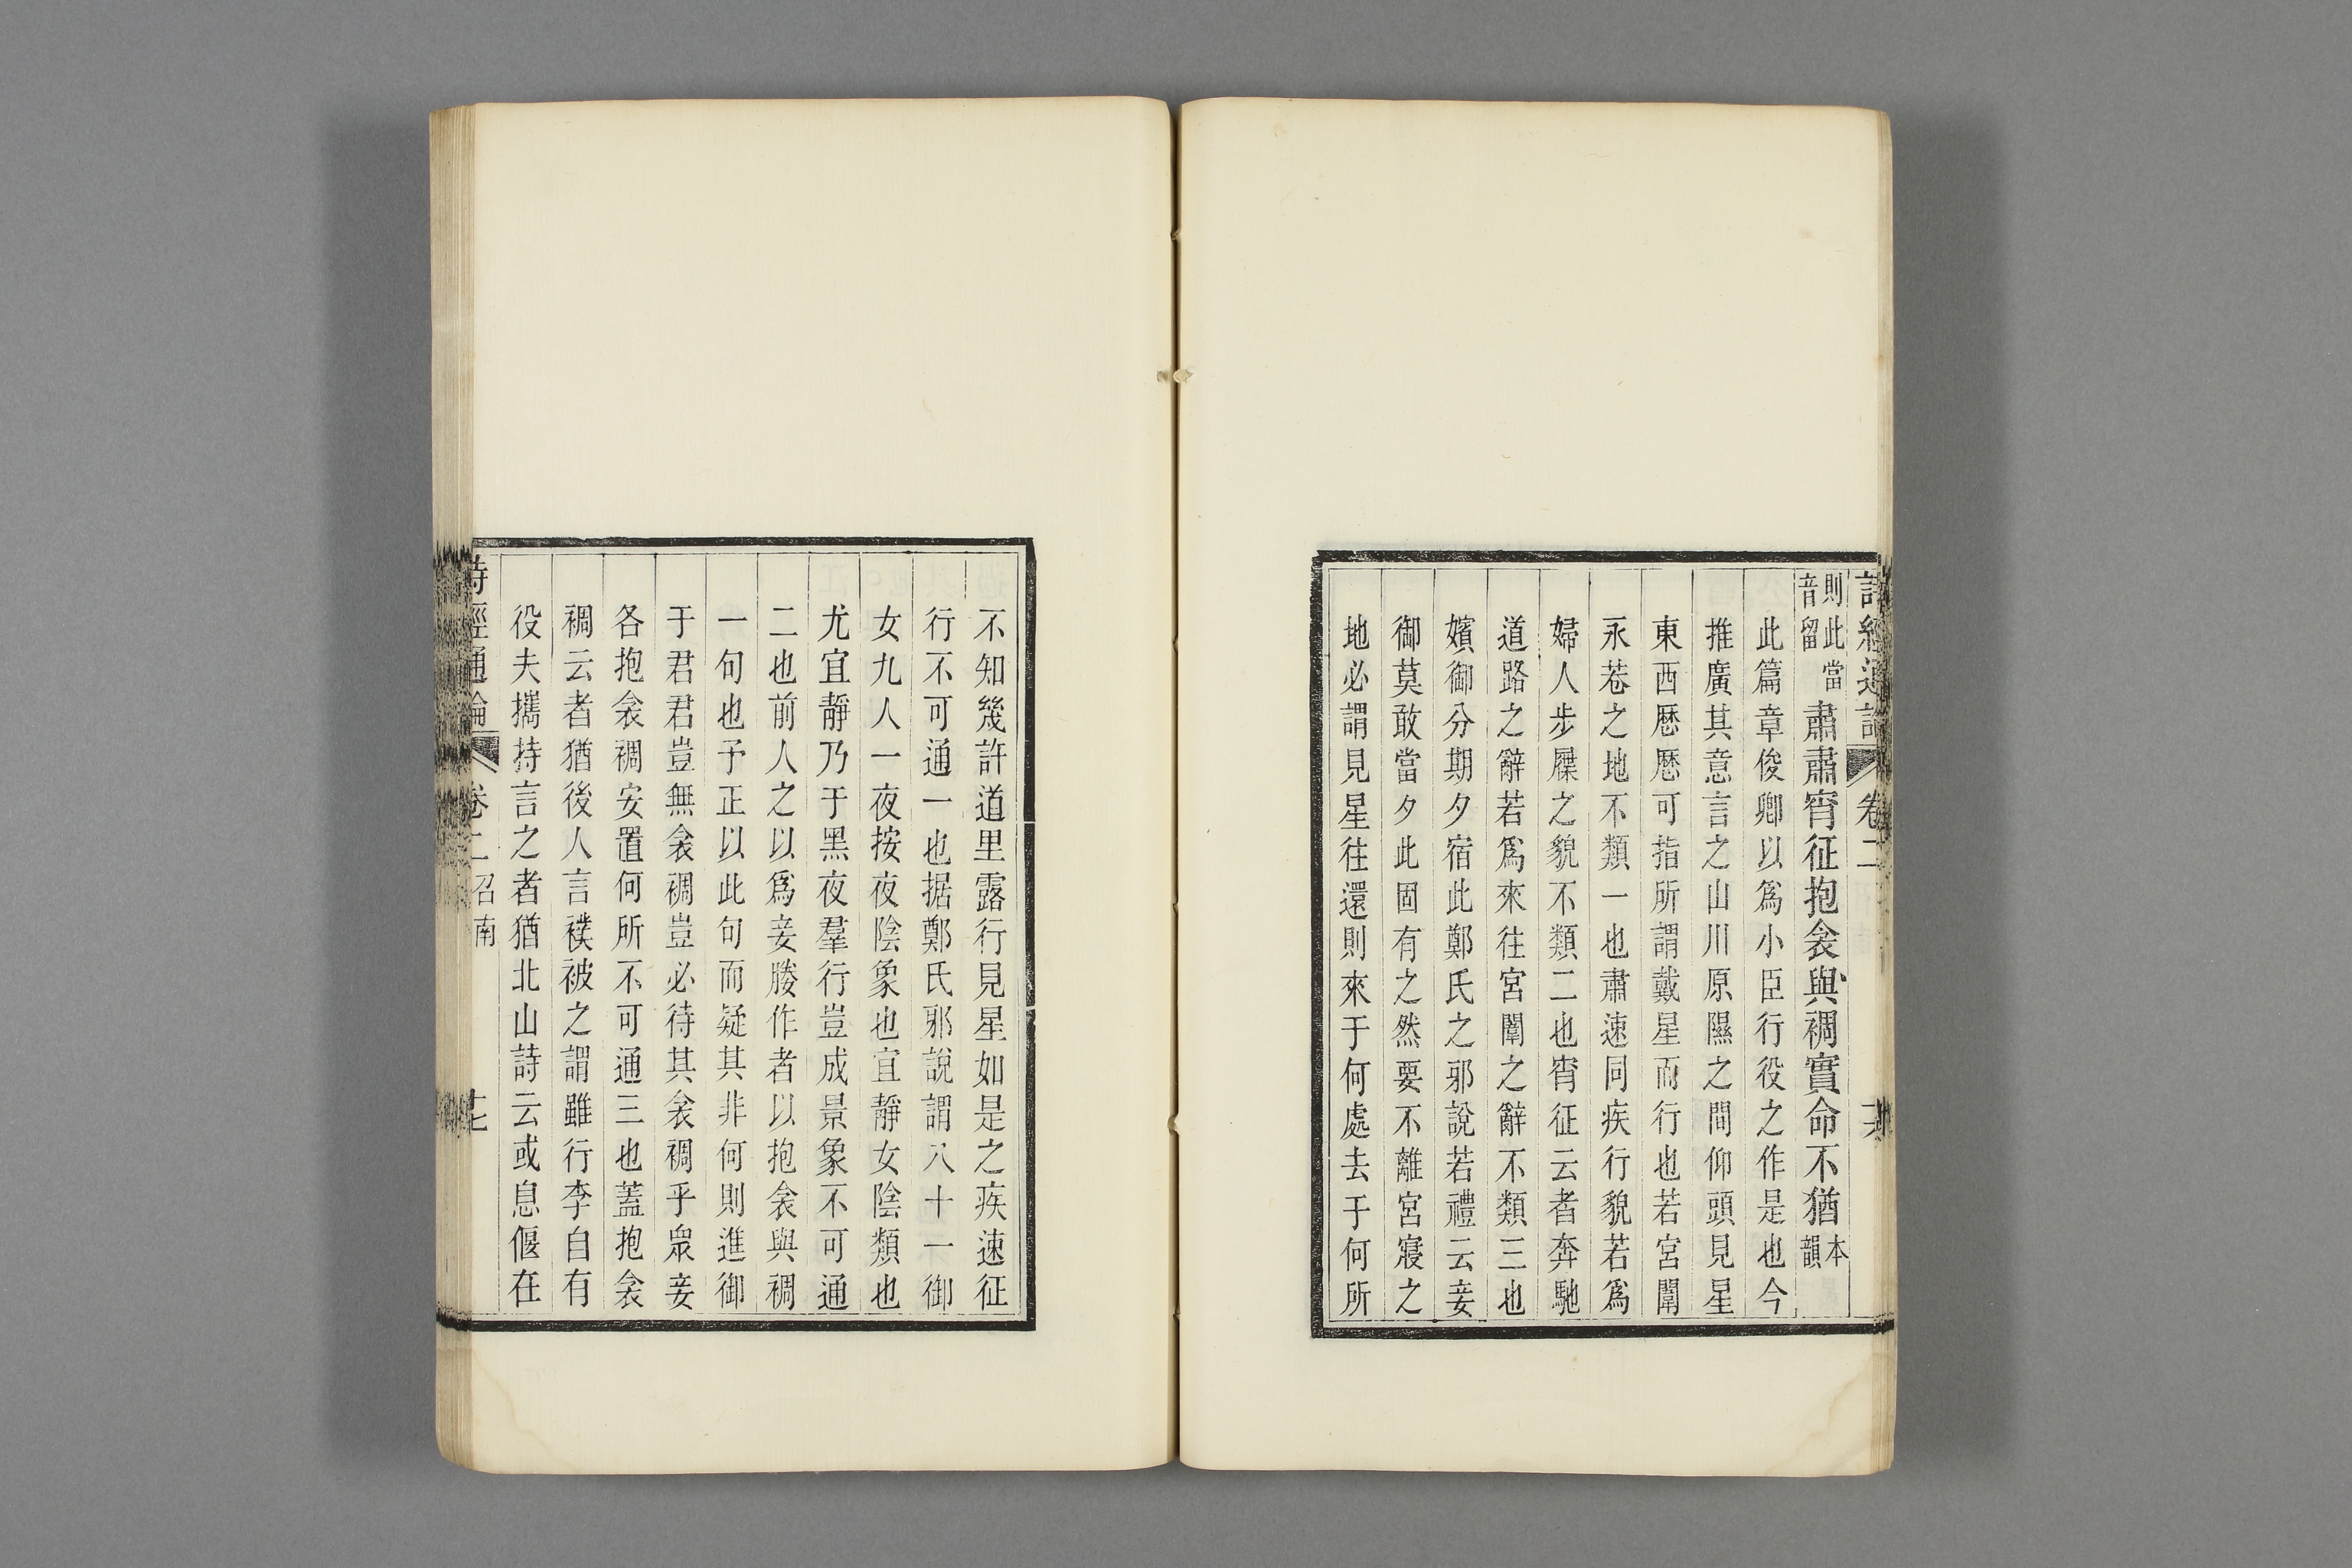 詩經通論 卷二 十六
則此當音留 肅肅宵征抱衾與裯實命不猶 本韻
此篇章俊卿以爲小臣行役之作是也今
推廣其意言之山川原隰之間仰頭見星
東西歷歷可指所謂戴星而行也若宮闈
永巷之地不類一也肅速同疾行貌若爲
婦人步屧之貌不類二也宵征云者奔馳
道路之辭若爲來往宮闈之辭不類三也
嬪御分期夕宿此鄭氏之邪說若禮云妾
御莫敢當夕此固有之然要不離宮寢之
地必謂見星往還則來于何處去于何所
不知幾許道里露行見星如是之疾速征
行不可通一也据鄭氏邪說謂八十一御
女九人一夜按夜陰象也宜靜女陰類也
尤宜靜乃于黑夜羣行豈成景象不可通
二也前人之以爲妾媵作者以抱衾與裯
一句也予正以此句而疑其非何則進御
于君君豈無衾裯豈必待其衾裯乎眾妾
各抱衾裯安置何所不可通三也蓋抱衾
裯云者猶後人言襆被之謂雖行李自有
役夫攜持言之者猶北山詩云或息偃在
詩經通論 卷二 召南 十七